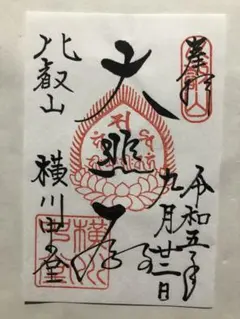 奉拝
令和五年
九月廿二日
大悲
比叡山
横川中堂